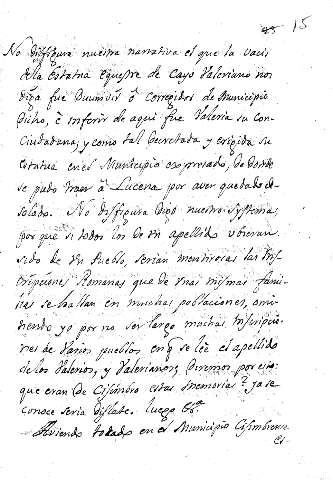 15
No desfigura nuestra narrativa el que la vasis
de la Estatua Equestre de Cayo Valeriano nos
diga fue Duumvir, ò Corregidor de Municipio
dicho, è inferir de aqui fue Valeria su con-
Ciudadana, y como tal Decretada y erigida su
estatua en el Municipio expresado, de donde
se pudo traer à Lucena por aver quedado de-
solado. No desfigura digo nuestro systema,
por que si todos los de un apellido uvieran
sido de un Pueblo, serian mentirosas las Ins-
cripciones Romanas que de unas mismas fami-
lias se hallan en muchas poblaciones, omi-
tiendo yo por no ser largo muchas Inscripcio-
nes de varios pueblos en q se lèe el apellido
de los Valerios, y Valerianos; Diremos por esto
que eran de Cisimbro estas memorias? ya se
conoce seria dislate. luego &ª.
Aviendo tocado en el Municipio Cisimbrense
es